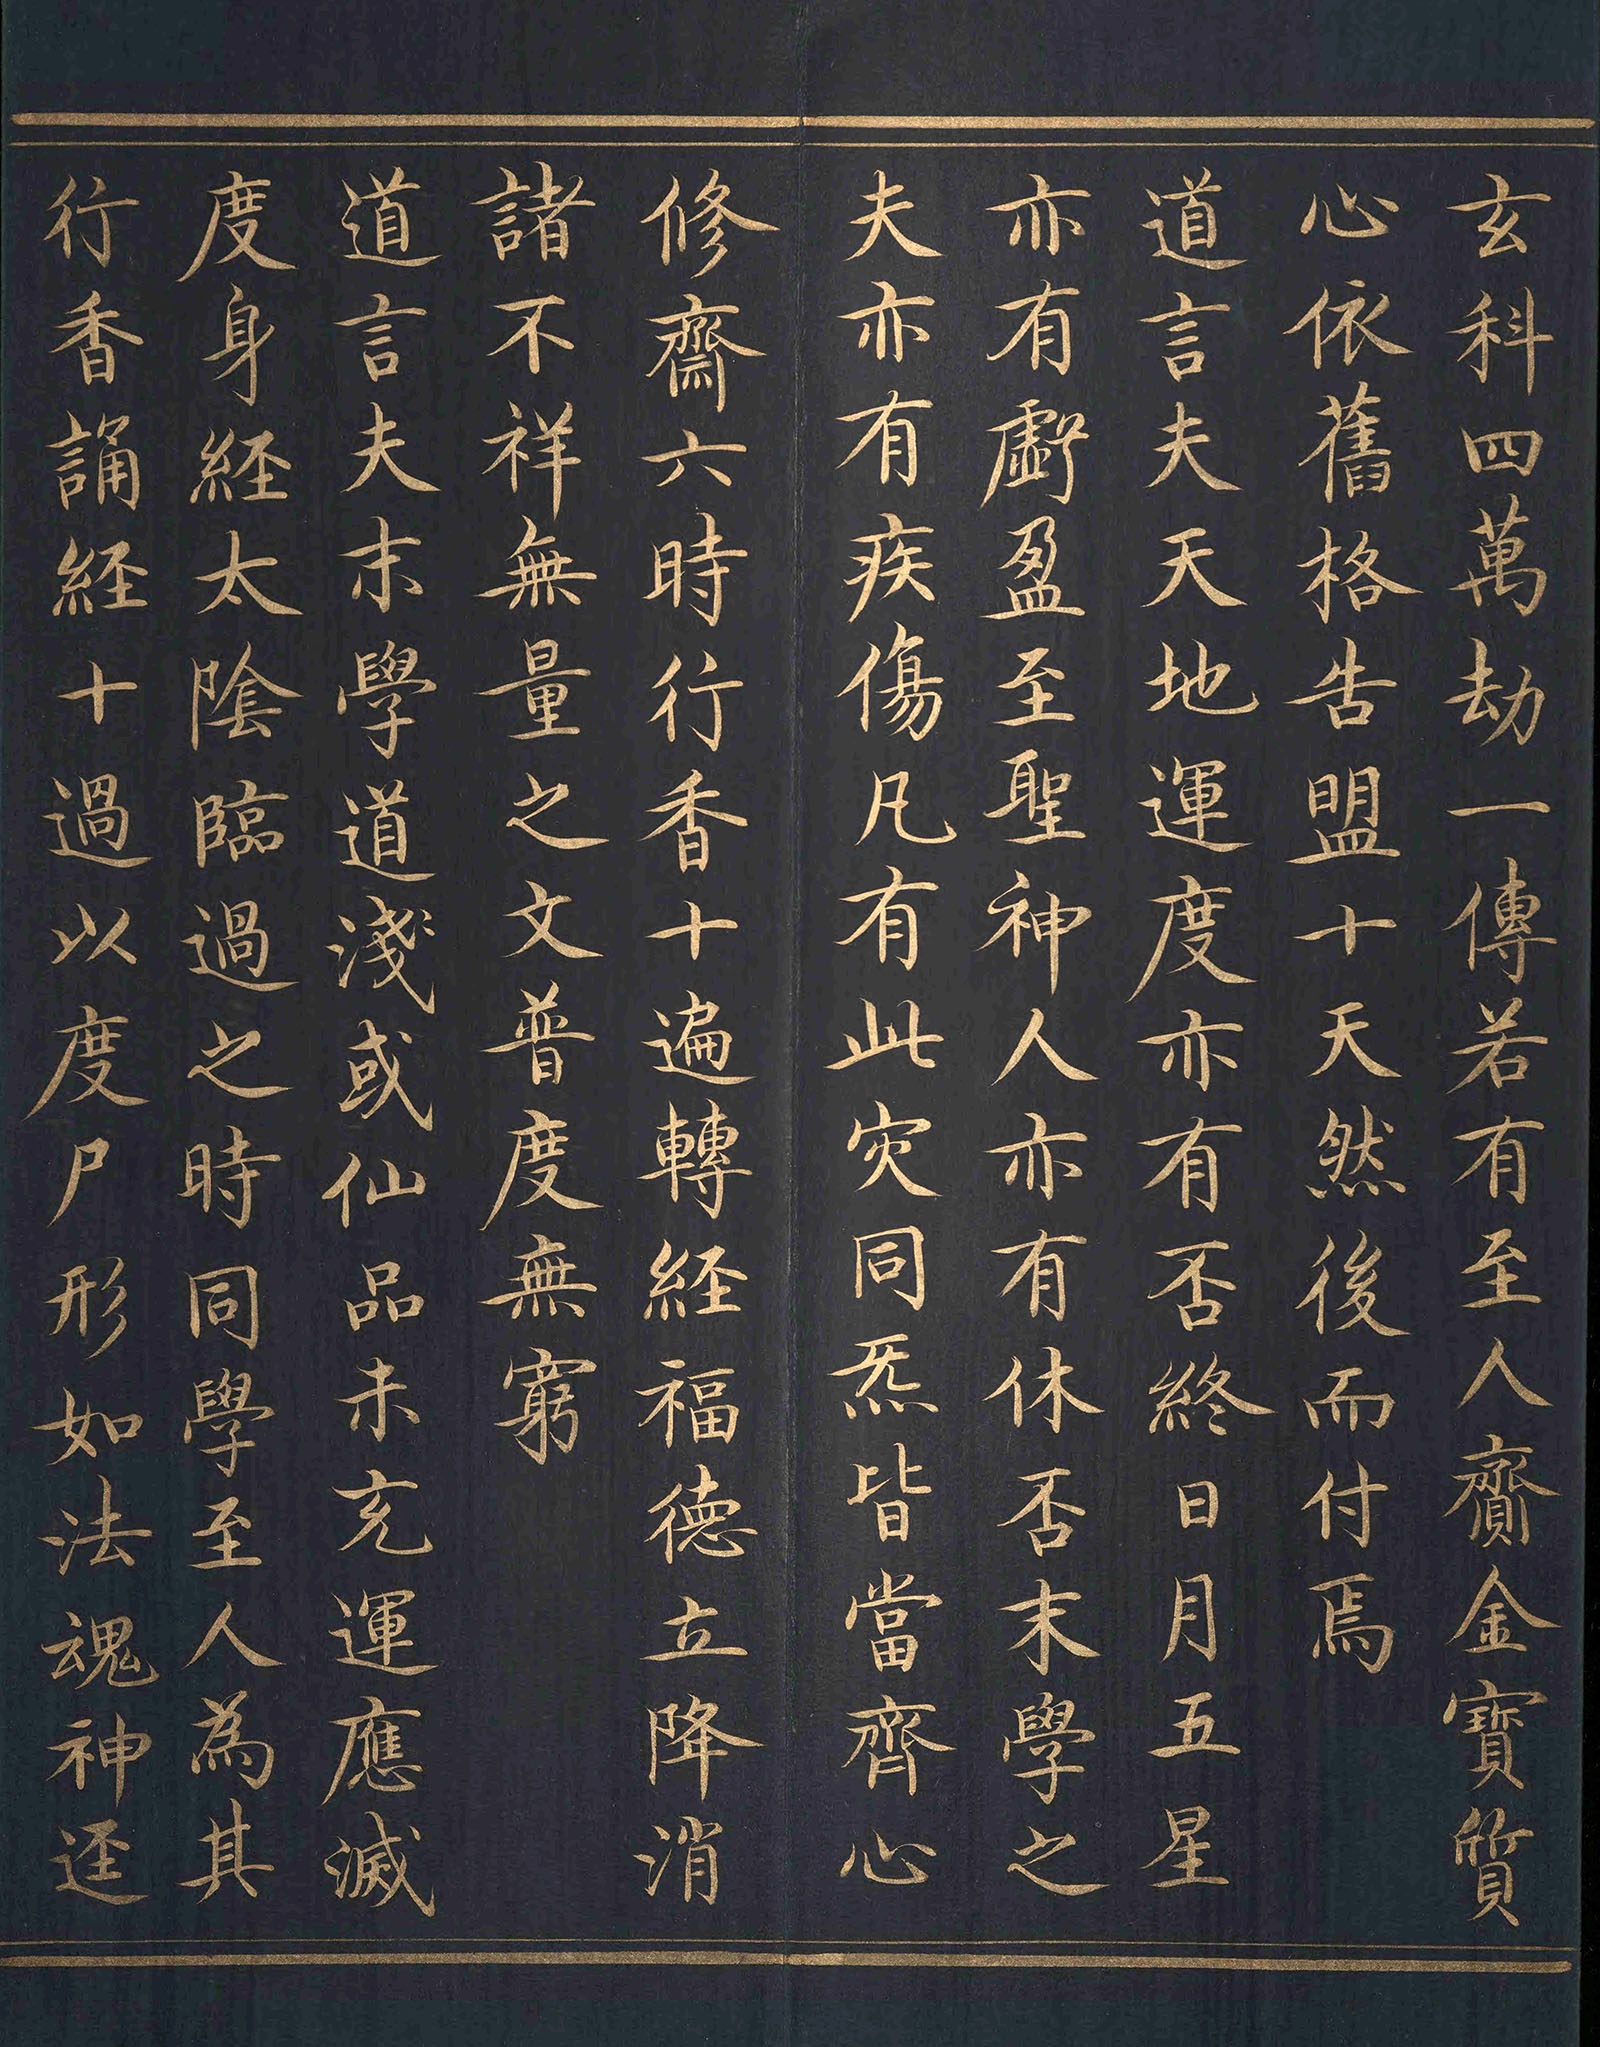 玄科四萬劫一傳若有至人齎金寶質
心依舊格告盟十天然後而付焉
道言夫天地運度亦有否終日月五星
亦有虧盈至聖神人亦有休否末學之
夫亦有疾傷凡有此灾同炁皆當齊心
修齋六時行香十遍轉経福德立降消
諸不祥無量之文普度無窮
道言夫末學道淺或仙品未充運應滅
度身経太陰臨過之時同學至人為其
行香誦経十過以度尸形如法魂神逕